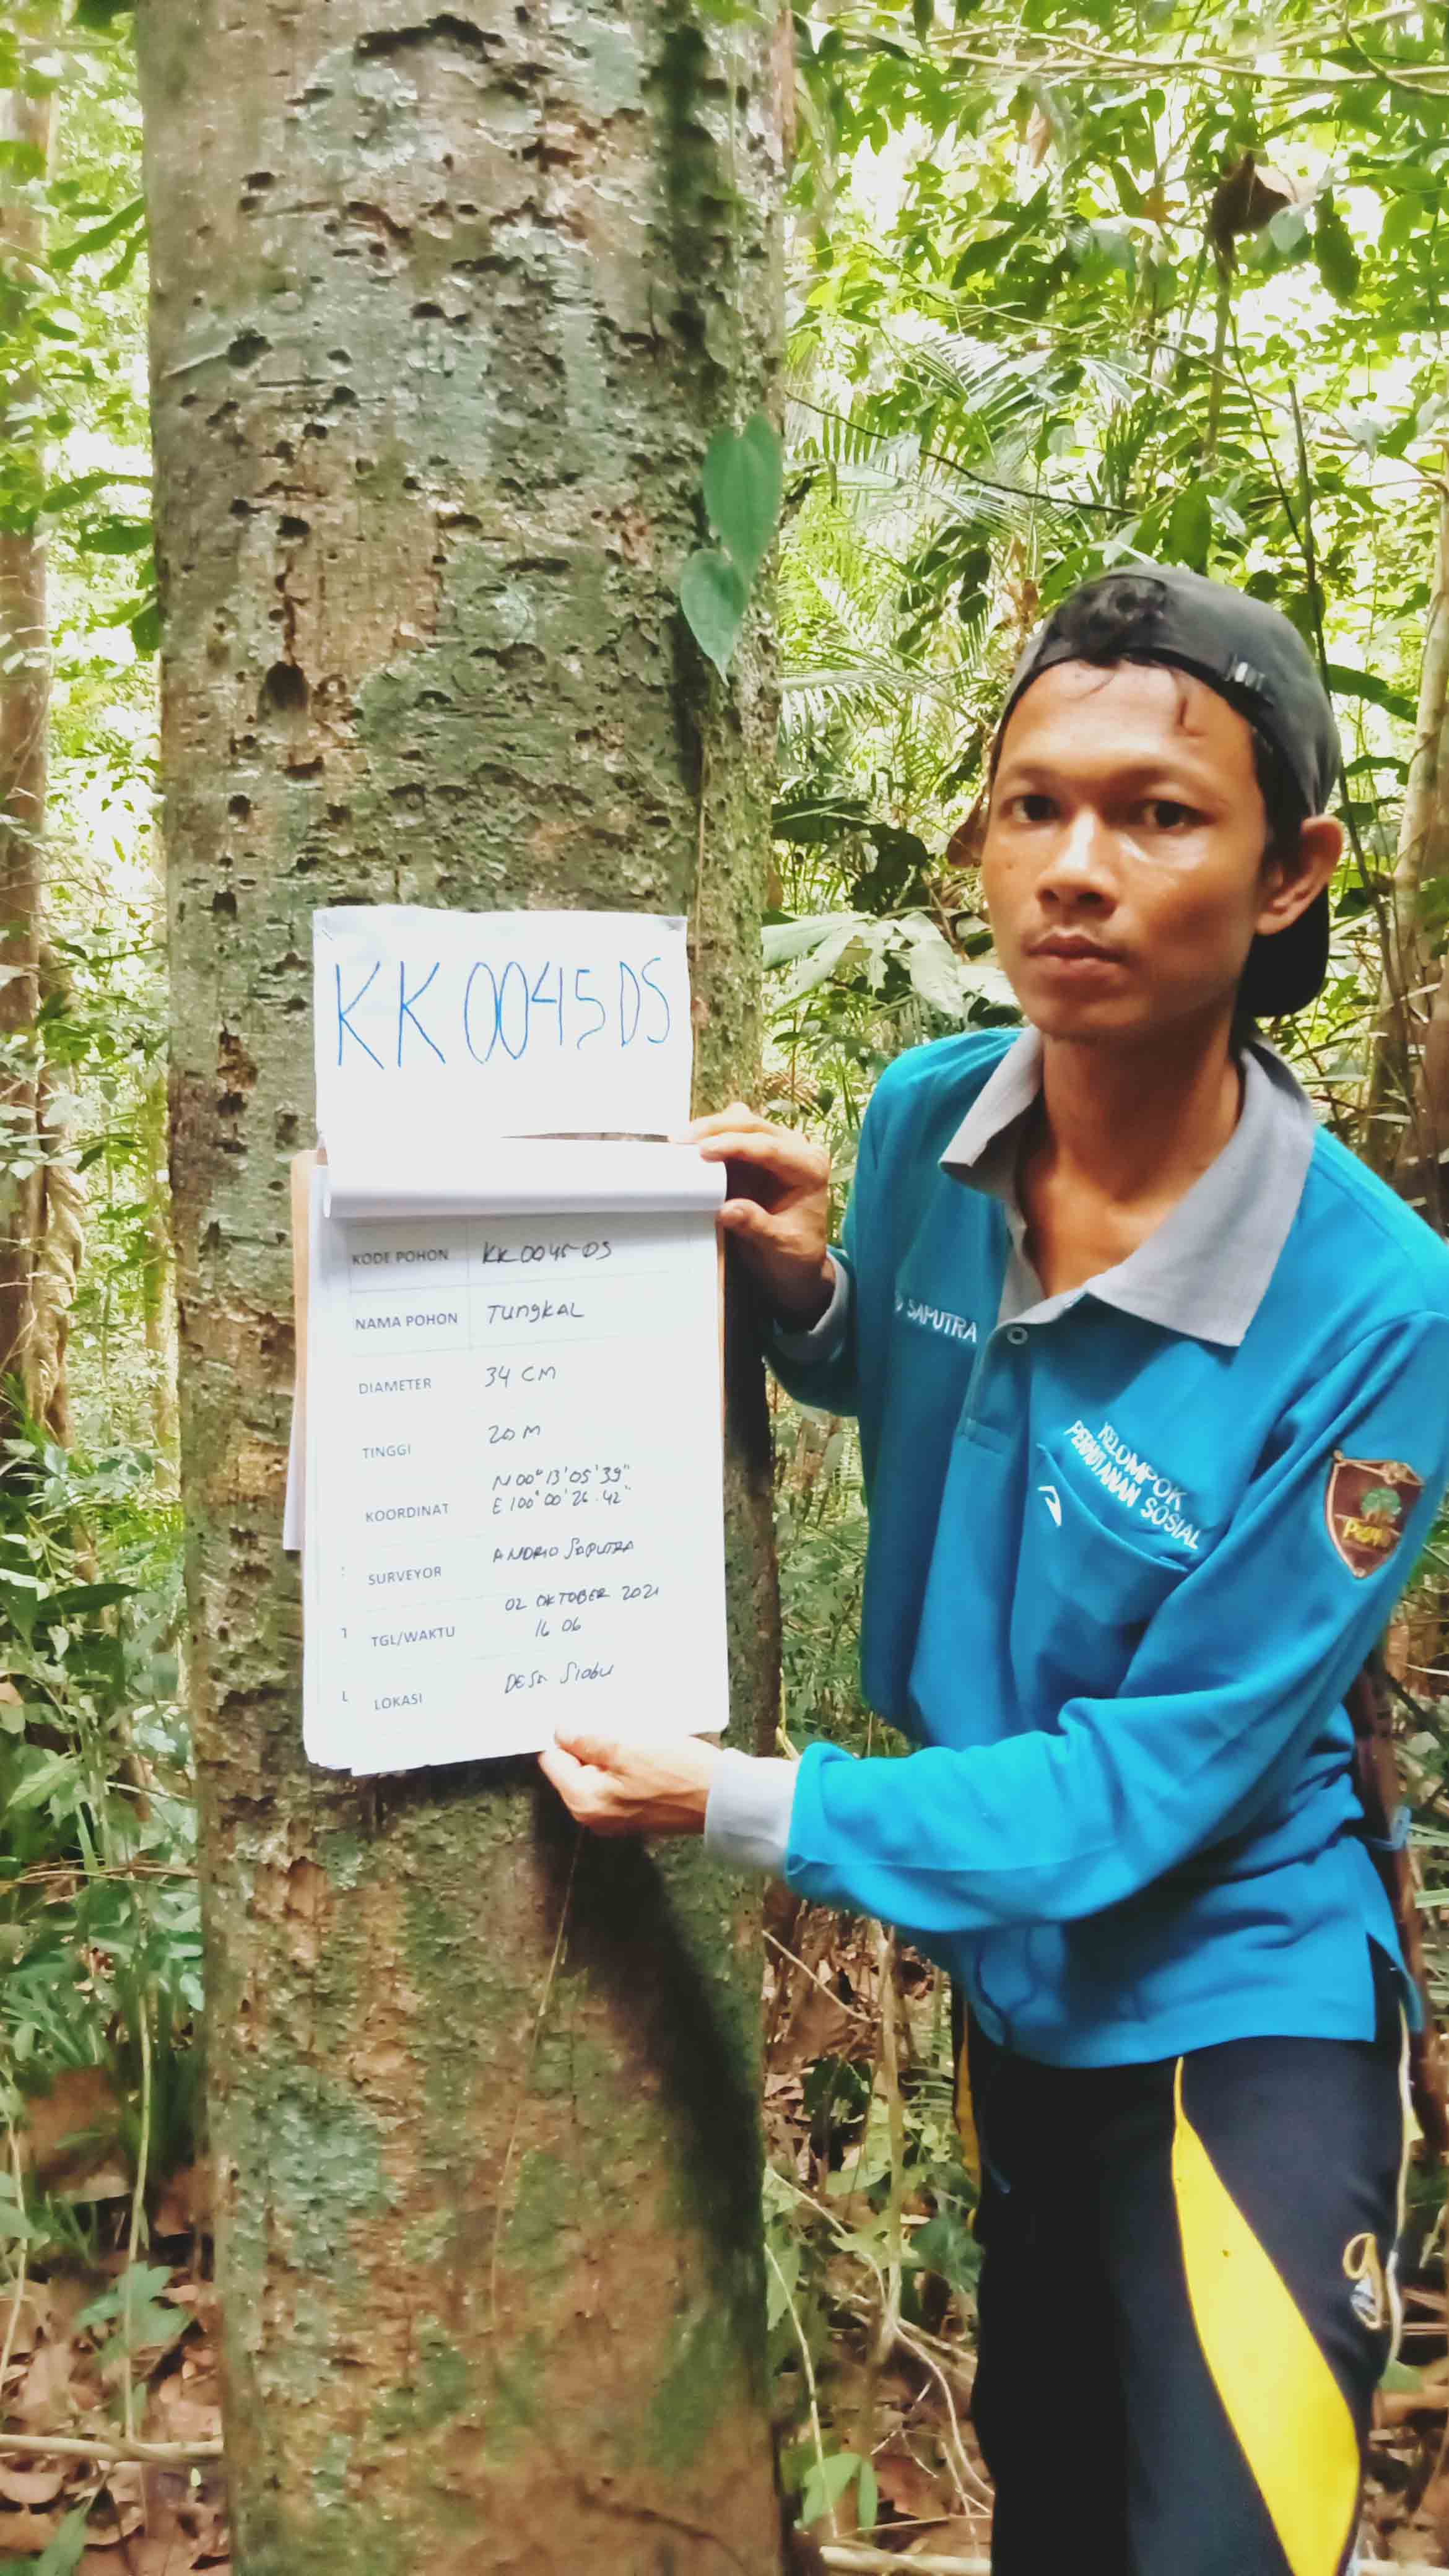 KK0045DS
KODE POHON KK0045 DS
NAMA POHON TUNGKAL
DIAMETER 34 CM
TINGGI 20 M
KOORDINAT N 00° 13' 05' 39"
E 100° 00' 26 . 42"
SURVEYOR ANDRIO SAPUTRA
TGL/WAKTU 02 OKTOBER 2021
16 06
LOKASI DESA SIOBU
SAPUTRA
KELOMPOK
PERHUTANAN SOSIAL